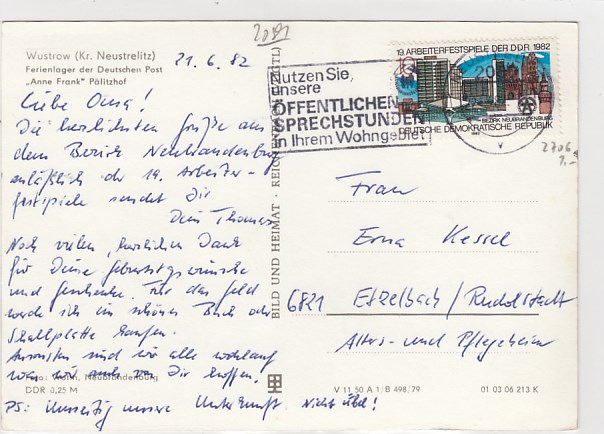 2091
Wustrow (Kr. Neustrelitz)
Ferienlager der Deutschen Post
„Anne Frank" Pälitzhof
21. 6. 82
Liebe Oma!
Die herzlichsten Grüße aus
dem Bezirk Neubrandenburg
anläßlich der 19. Arbeiter-
festspiele sendet Dir
Dein Thomas
Noch vielen, herzlichen Dank
für Deine Geburtstagswünsche
und Geschenke. Für das Geld
werde ich ein schönes Buch oder
Schallplatte kaufen.
Ansonsten sind wir alle wohlauf
was wir auch von Dir hoffen.
Neubrandenburg
DDR 0,25 M
PS: Umseitig unsere Unterkunft Nicht übel!
BILD UND HEIMAT · REICHENBACH (VOGTL)
Nutzen Sie,
unsere
ÖFFENTLICHEN
SPRECHSTUNDEN
in Ihrem Wohngebiet
19. ARBEITERFESTSPIELE DER DDR 1982
BEZIRK NEUBRANDENBURG
DEUTSCHE DEMOKRATISCHE REPUBLIK
Frau
Erna Kessel
6821 Etzelbach/Rudolstadt
Alters- und Pflegeheim
V 11 50 A 1/B 498/79
01 03 06 213 K